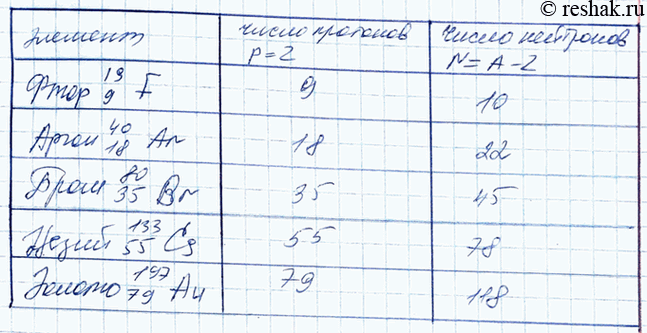 © reshak.ru
Элемент	число протонов P=Z	число нейтронов N=A-Z
Фтор ¹⁹₉F	9	10
Аргон ⁴⁰₁₈Ar	18	22
Бром ⁸⁰₃₅Br	35	45
Цезий ¹³³₅₅Cs	55	78
Золото ¹⁹⁷₇₉Au	79	118